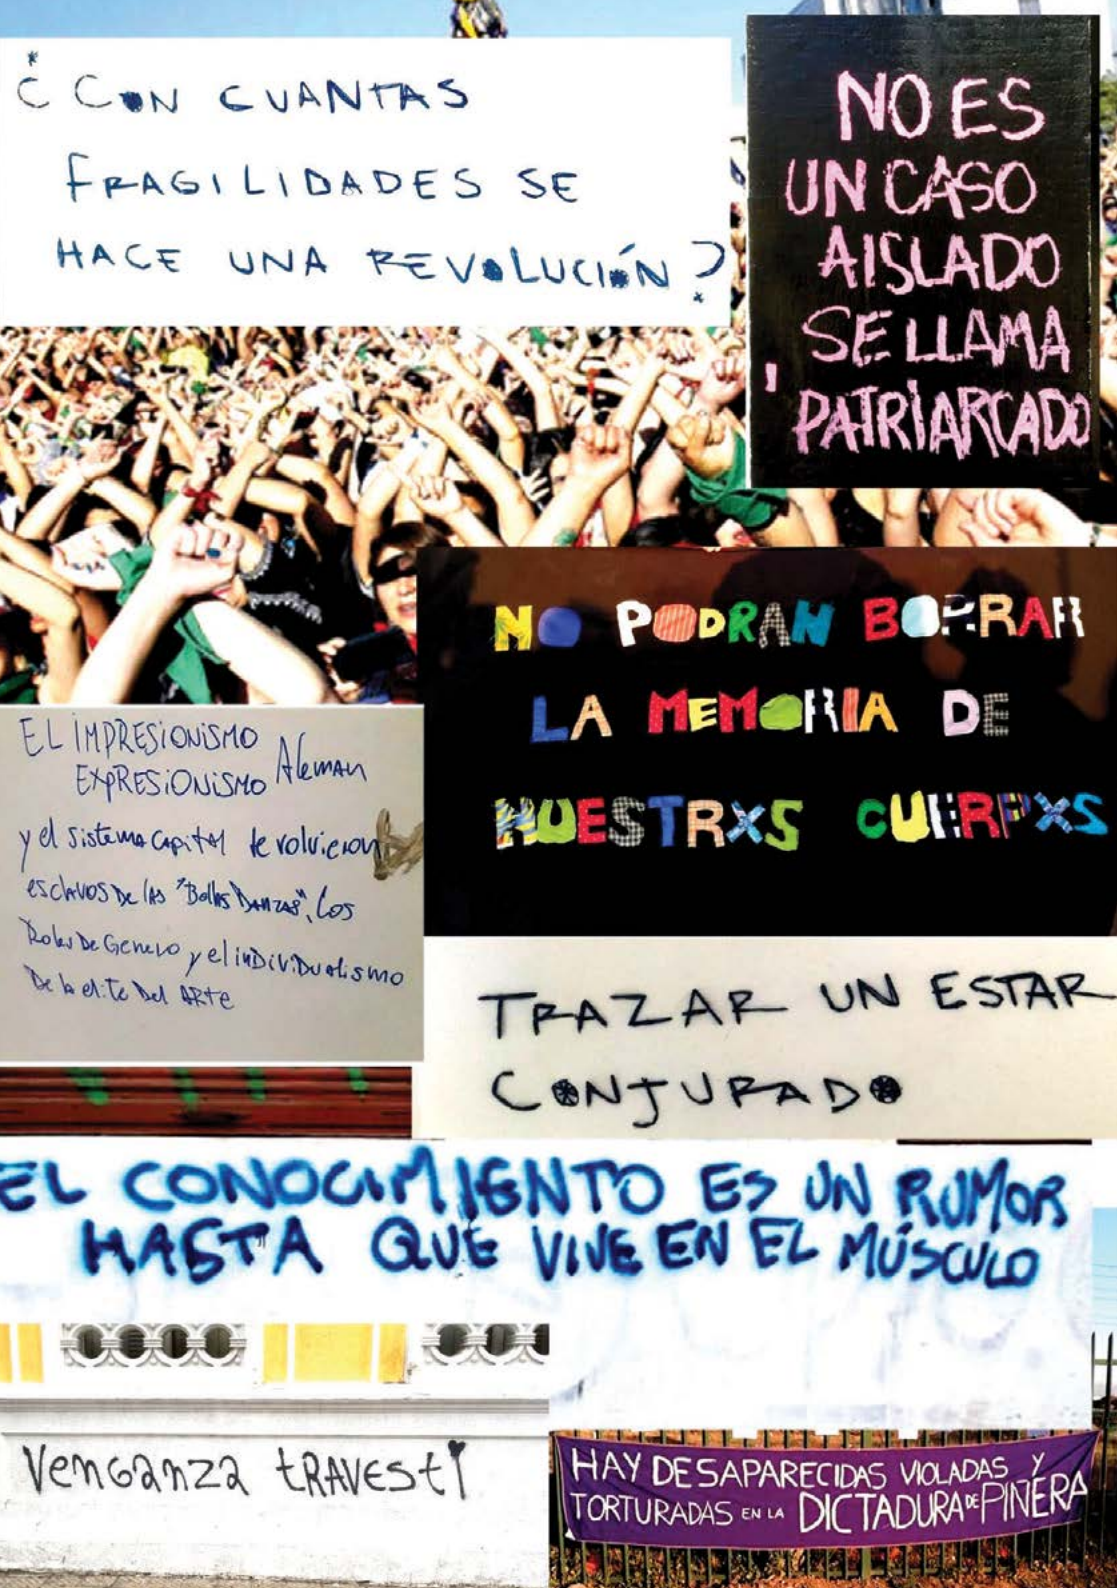 ¿CON CUANTAS
FRAGILIDADES SE
HACE UNA REVOLUCIÓN?
NO ES
UN CASO
AISLADO
SE LLAMA
PATRIARCADO
NO PODRAN BORRAR
LA MEMORIA DE
NUESTRXS CUERPXS
EL IMPRESIONISMO
EXPRESIONISMO Aleman
y el sistema capital te volvieron
esclavos De las "Bellas Danzas", Los
Roles De Genero y el inDiViDualismo
De la elite Del ARte
TRAZAR UN ESTAR
CONJURADO
EL CONOCIMIENTO ES UN RUMOR
HASTA QUE VIVE EN EL MÚSCULO
VenGanza tRAVEStI
HAY DESAPARECIDAS VIOLADAS Y
TORTURADAS EN LA DICTADURA DE PIÑERA